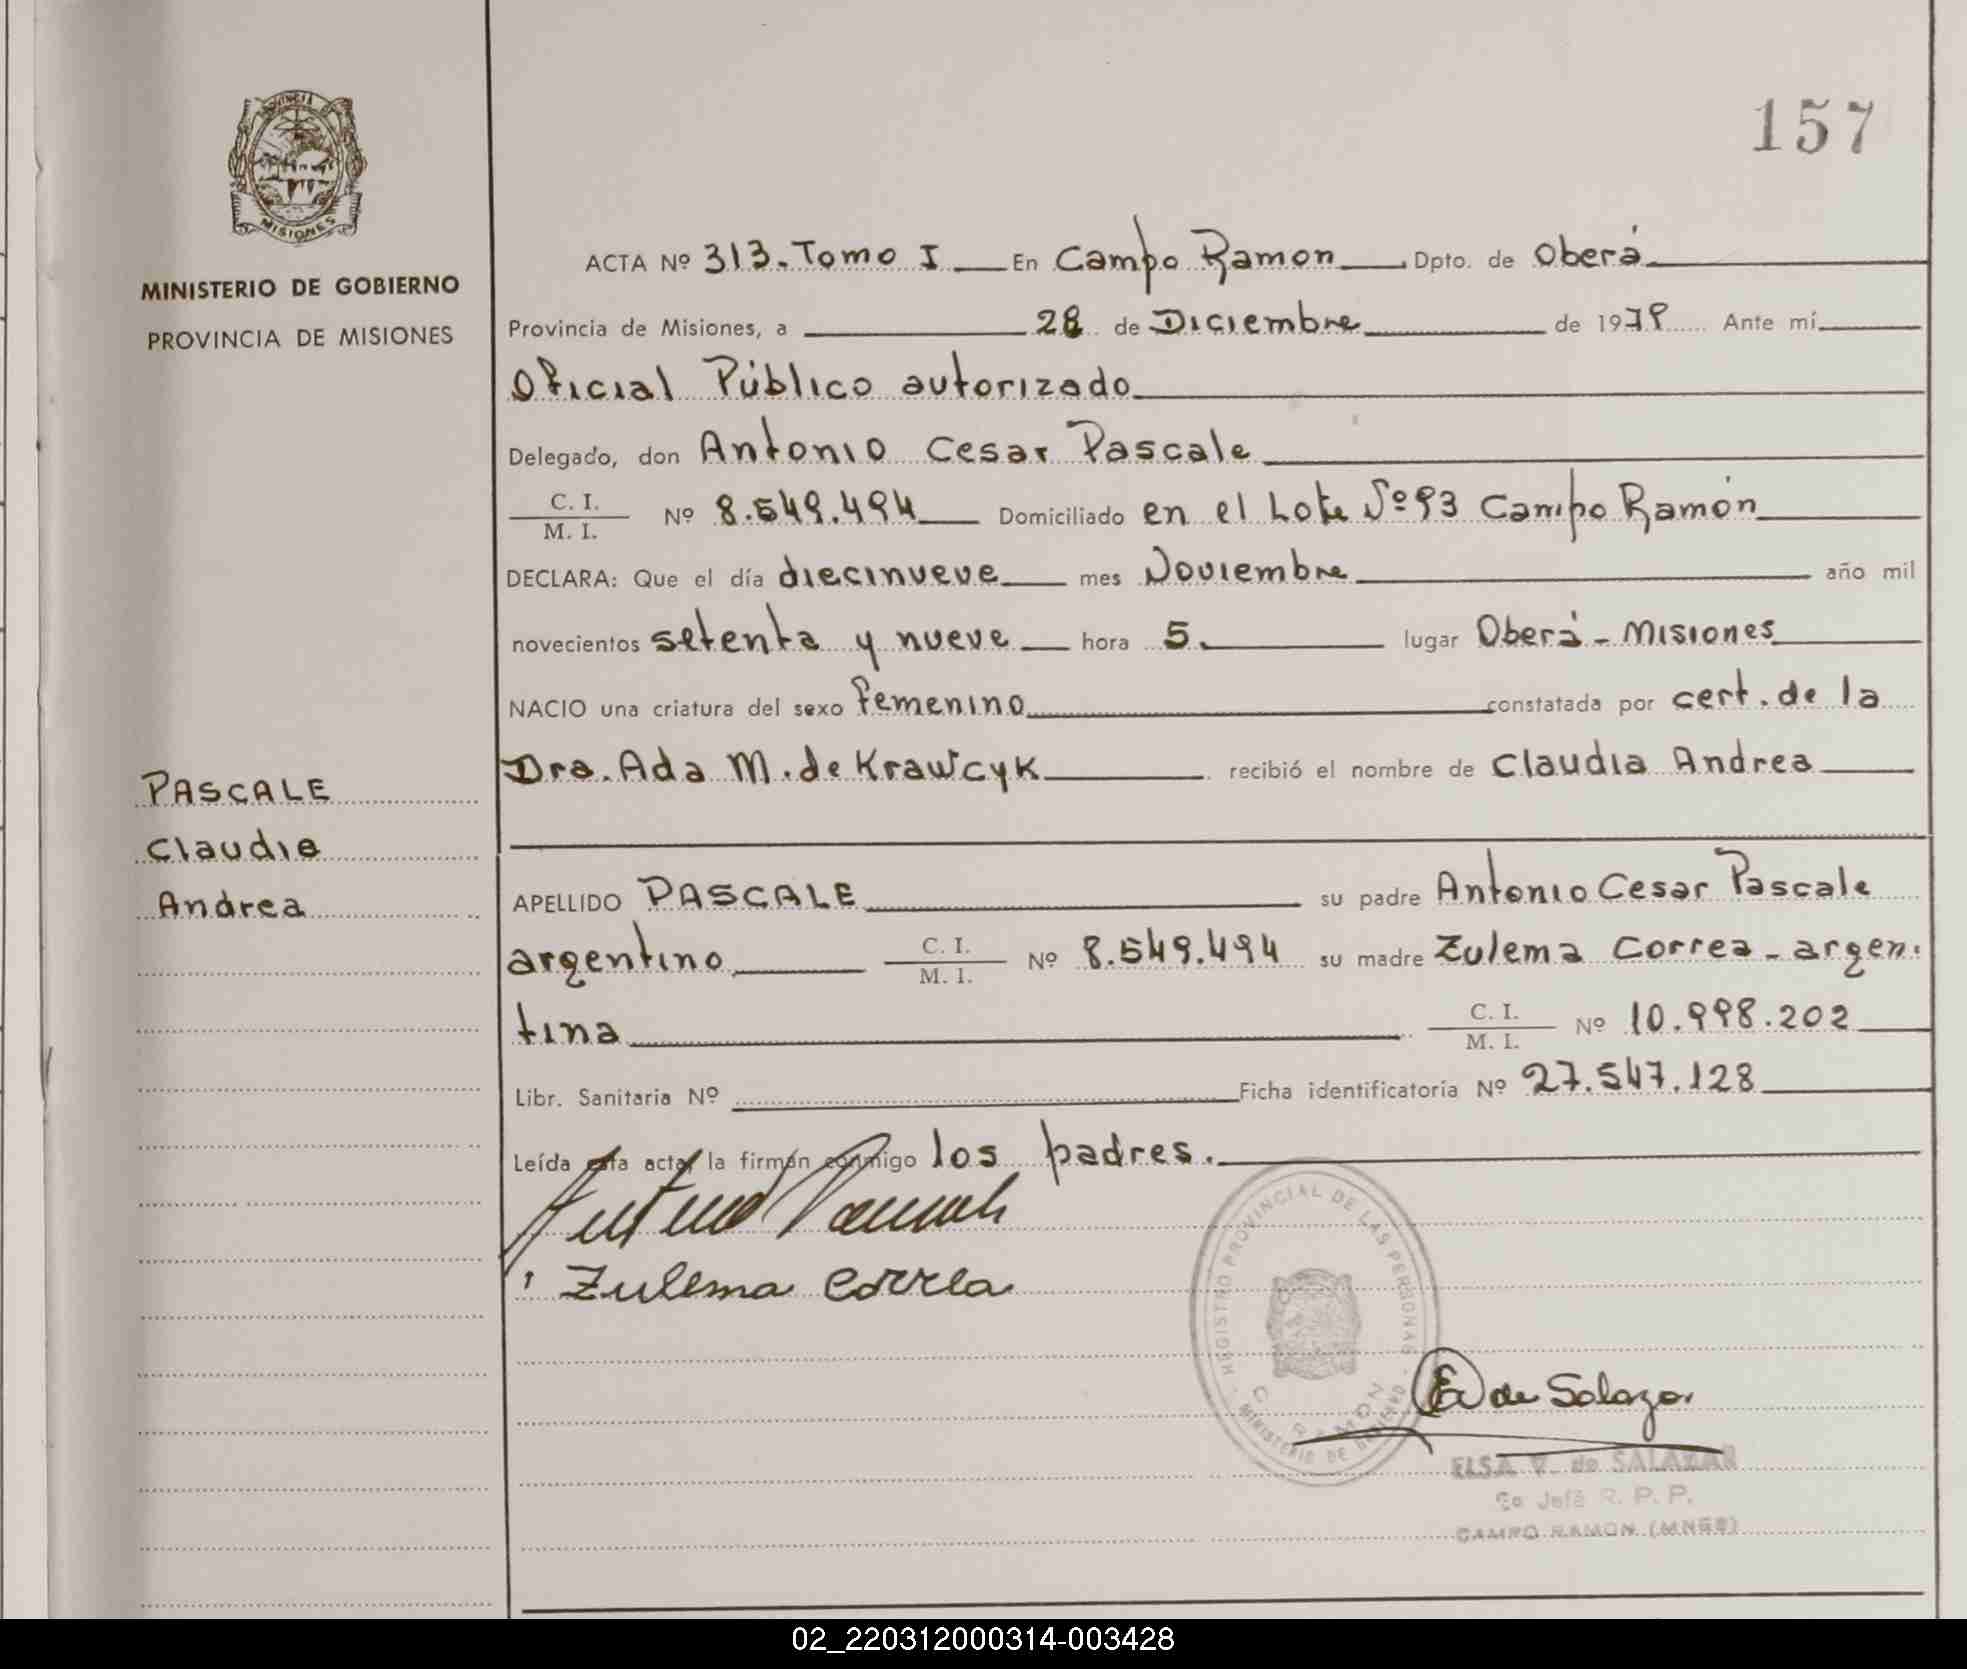 157
PROVINCIA DE
MISIONES
MINISTERIO DE GOBIERNO
PROVINCIA DE MISIONES
ACTA Nº 313. Tomo I En Campo Ramon Dpto. de Oberá
Provincia de Misiones, a 28 de Diciembre de 1979 Ante mí
Oficial Público autorizado
Delegado, don Antonio Cesar Pascale
C. I. / M. I. Nº 8.549.494 Domiciliado en el Lote Nº 93 Campo Ramón
DECLARA: Que el día diecinueve mes Noviembre año mil
novecientos setenta y nueve hora 5. lugar Oberá - Misiones
NACIO una criatura del sexo femenino constatada por cert. de la
Dra. Ada M. de Krawcyk recibió el nombre de Claudia Andrea
PASCALE
Claudia
Andrea
APELLIDO PASCALE su padre Antonio Cesar Pascale
argentino C. I. / M. I. Nº 8.549.494 su madre Zulema Correa - argen-
tina C. I. / M. I. Nº 10.998.202
Libr. Sanitaria Nº Ficha identificatoria Nº 27.547.128
Leída esta acta, la firman conmigo los padres.
Zulema Correa
REGISTRO PROVINCIAL DE LAS PERSONAS
C. RAMON
MINISTERIO DE GOBIERNO
E V de Salazar
ELSA V. de SALAZAR
Jefe R. P. P.
CAMPO RAMON (MNES)
02_220312000314-003428